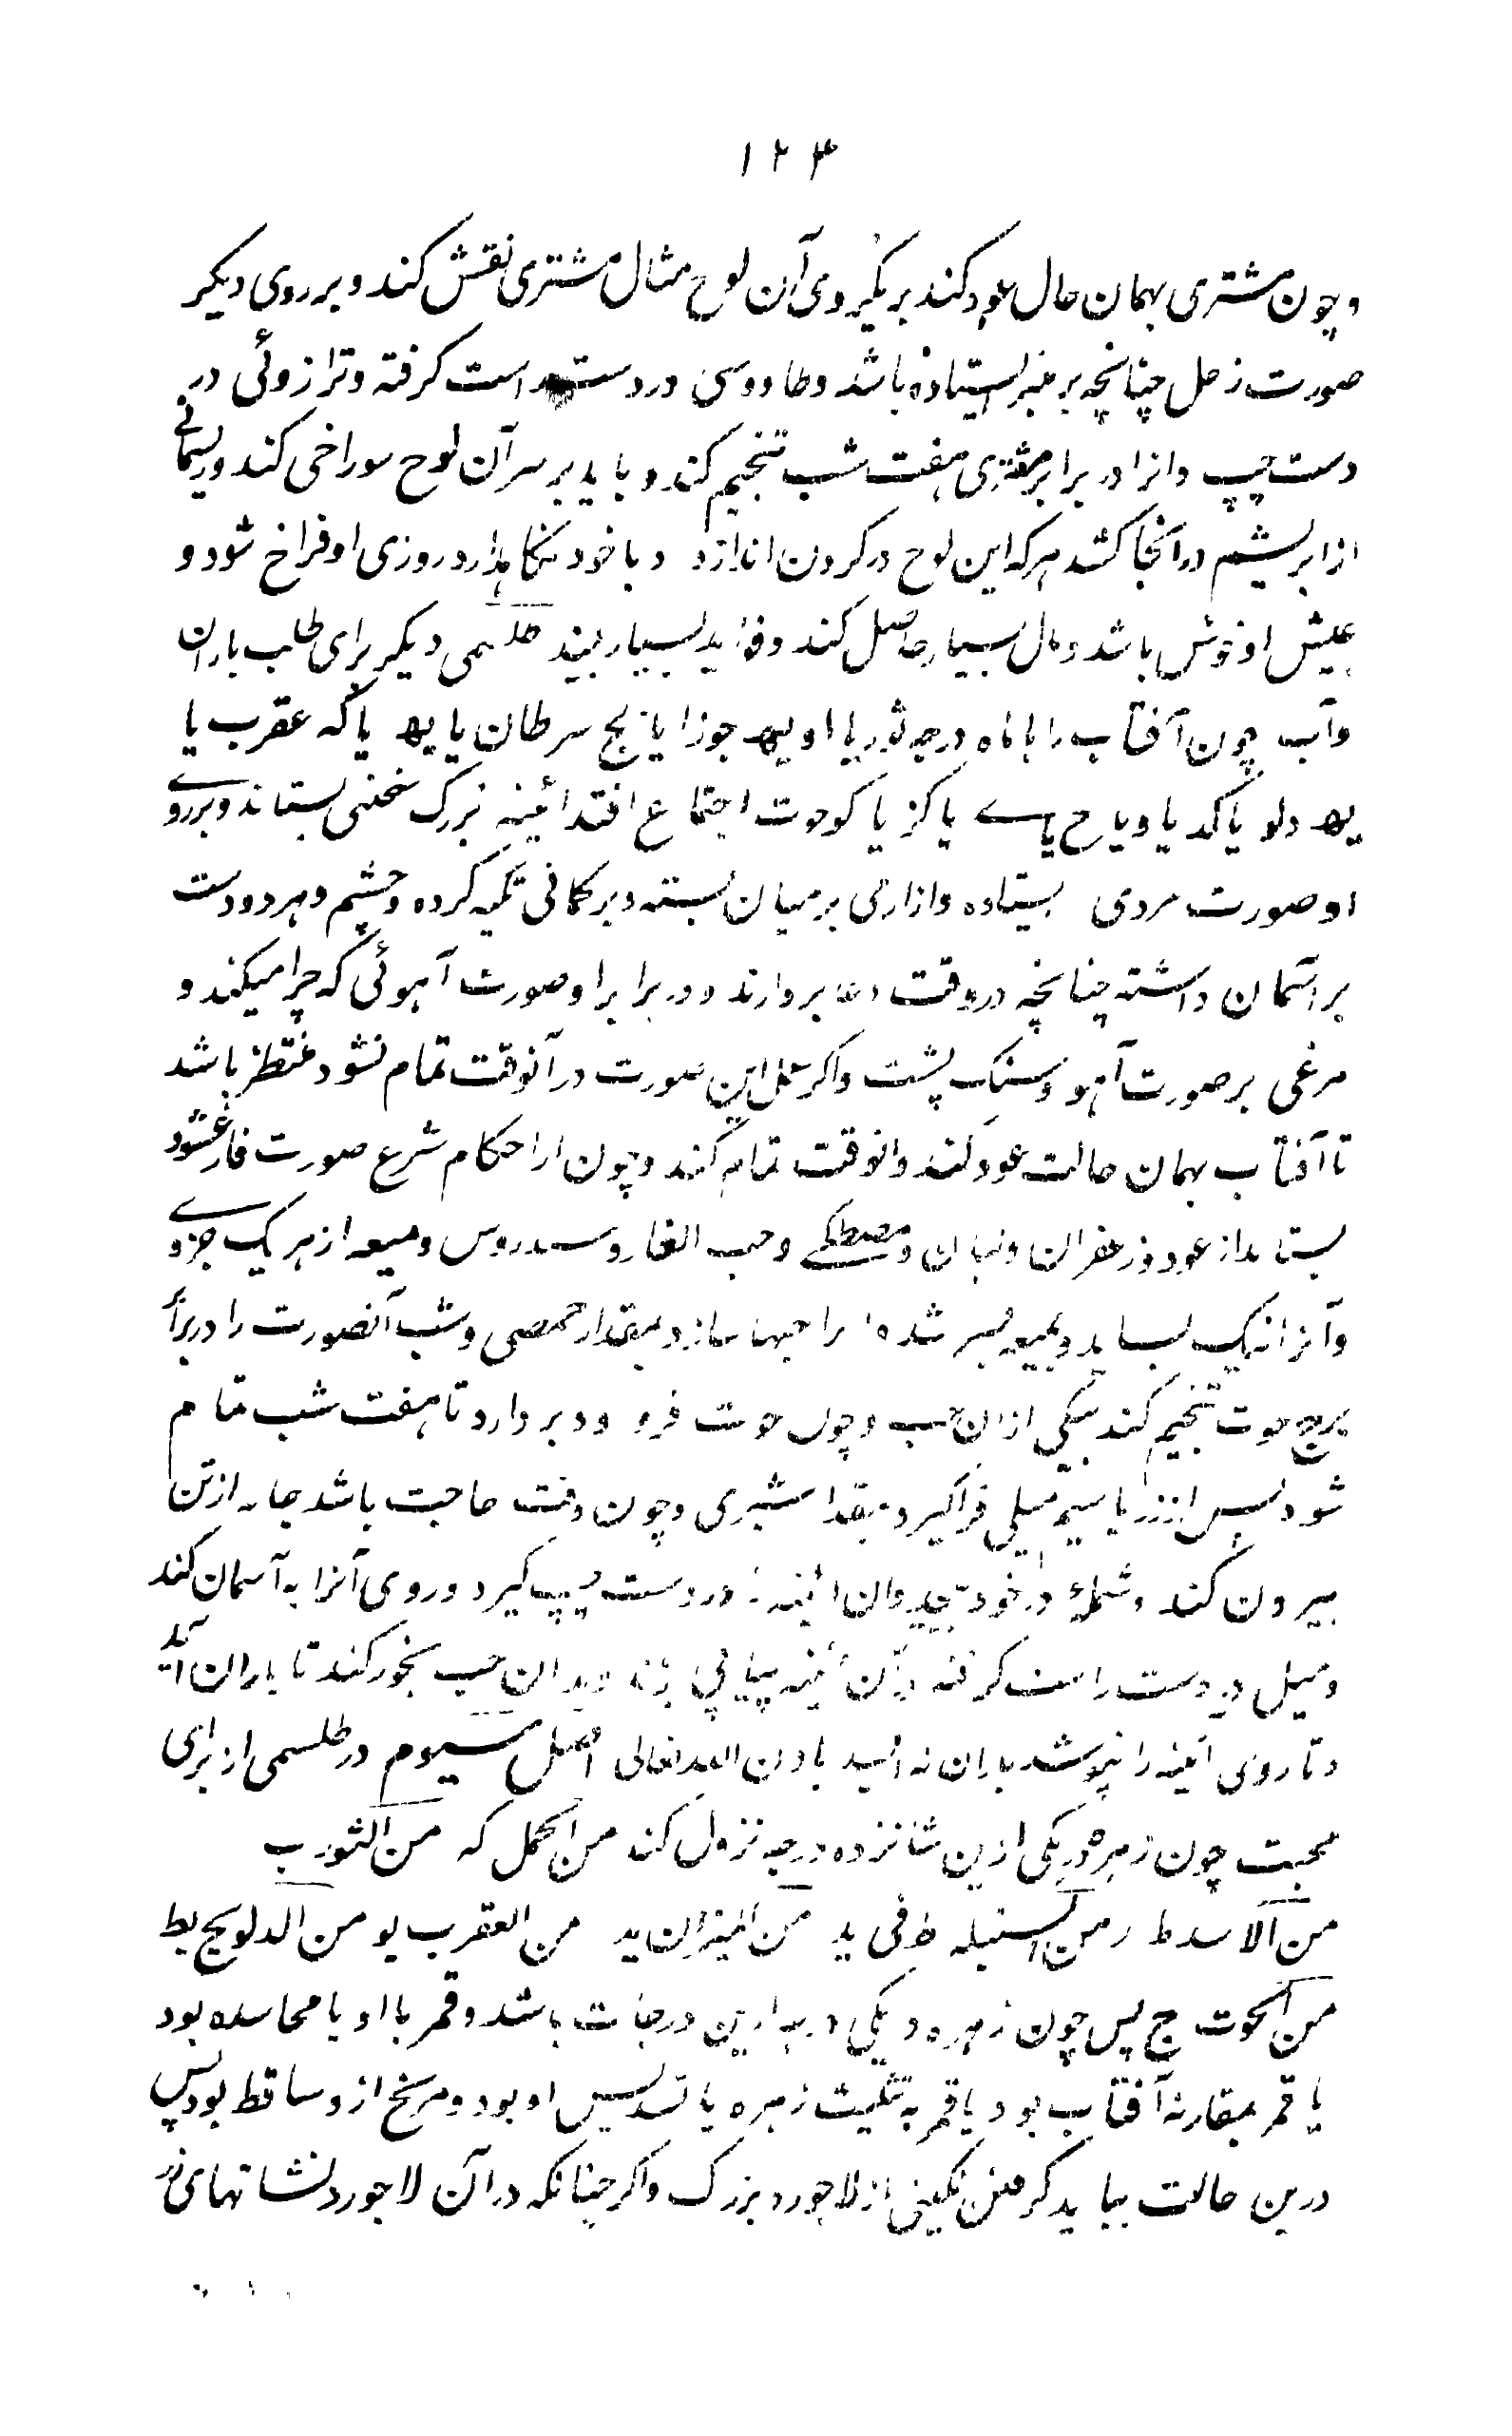 ۱۲۳
وچون مشتری بهمان حال عود کند بریکروی آن لوح مثال مشتری نقش کند و بر روی دیکر
صورت زحل چنانچه بر منبر ایستاده باشد وطاووسی در دست راست کرفته وترازوئی در
دست چپ وانرا در برابر مشتری هفت شب تنجیم کند و باید بر سر آن لوح سوراخی کند وریسمانی
از ابریشم در آنجا کشد هرکه این لوح در کردن اندازد و با خود نکاهدارد روزی او فراخ شود و
عیش او خوش باشد ومال بسیار حاصل کند وفواید بسیار بیند طلسمی دیکر برای طلب باران
وآب چون آفتاب را با ماه درجه ثور یا او یه جوزا یا ج سرطان یا یه یا که عقرب یا
یه دلو یا کد یا و یا ح یا یا کز یا کو حوت اجتماع افتد ائینه بزرک بستاند وبرروی
او صورت مردی ایستاده وازاری بر میان بسته و بر کمانی تکیه کرده وچشم وهر دو دست
بر آسمان داشته چنانچه در وقت دعا بردارند و در برابر او صورت آهوئی که چرا میکند و
مرغی بر صورت آهو وسنک پشت واکر عمل این صورت در آنوقت تمام نشود منتظر باشد
تا آفتاب بهمان حالت عود کند وانوقت تمام کند وچون از احکام شرع صورت فارغ شود
بستاند از عود وزعفران ولبان ومصطکی وحب الغار وسندروس ومیعه از هر یک جزوی
وآنرا نیک بساید و بمیعه سرشده را حبها سازد بمقدار حمصی وشب آنصورت را در برابر
برج حوت تنجیم کند بیکی از ان حب وچون حوت فرو رود بردارد تا هفت شب تمام
شود پس از زر یا سیم میلی فراکیرد بمقدار شبری وچون وقت حاجت باشد جامه از تن
بیرون کند و در خود وان ائینه در دست چپ کیرد و روی آنرا به آسمان کند
ومیل در دست راست کرفته بر آن ائینه پیاپی زند وبدان حب بخور کند تا باران آید
وتا روی ائینه را نپوشد باران نه ایستد باذن الله تعالی اصل سیوم در طلسمی از برای
محبت چون زهره در یکی ازین شانزده درجه نزول کند من الحمل که من الثور ب
من الاسد ط ر من السنبله ط فی ید من المیزان ید من العقرب یو من الدلو یج یط
من الحوت ج پس چون زهره در یکی ازین درجات باشد وقمر با او یا محاسده بود
یا قمر بمقارنه آفتاب بود یا قمر به تثلیث زهره یا تسدیس او بود ومریخ ازو ساقط بود پس
درین حالت بباید کرفتن نکینی از لاجورد بزرک واکر چنانکه در آن لاجورد نشانهای زر